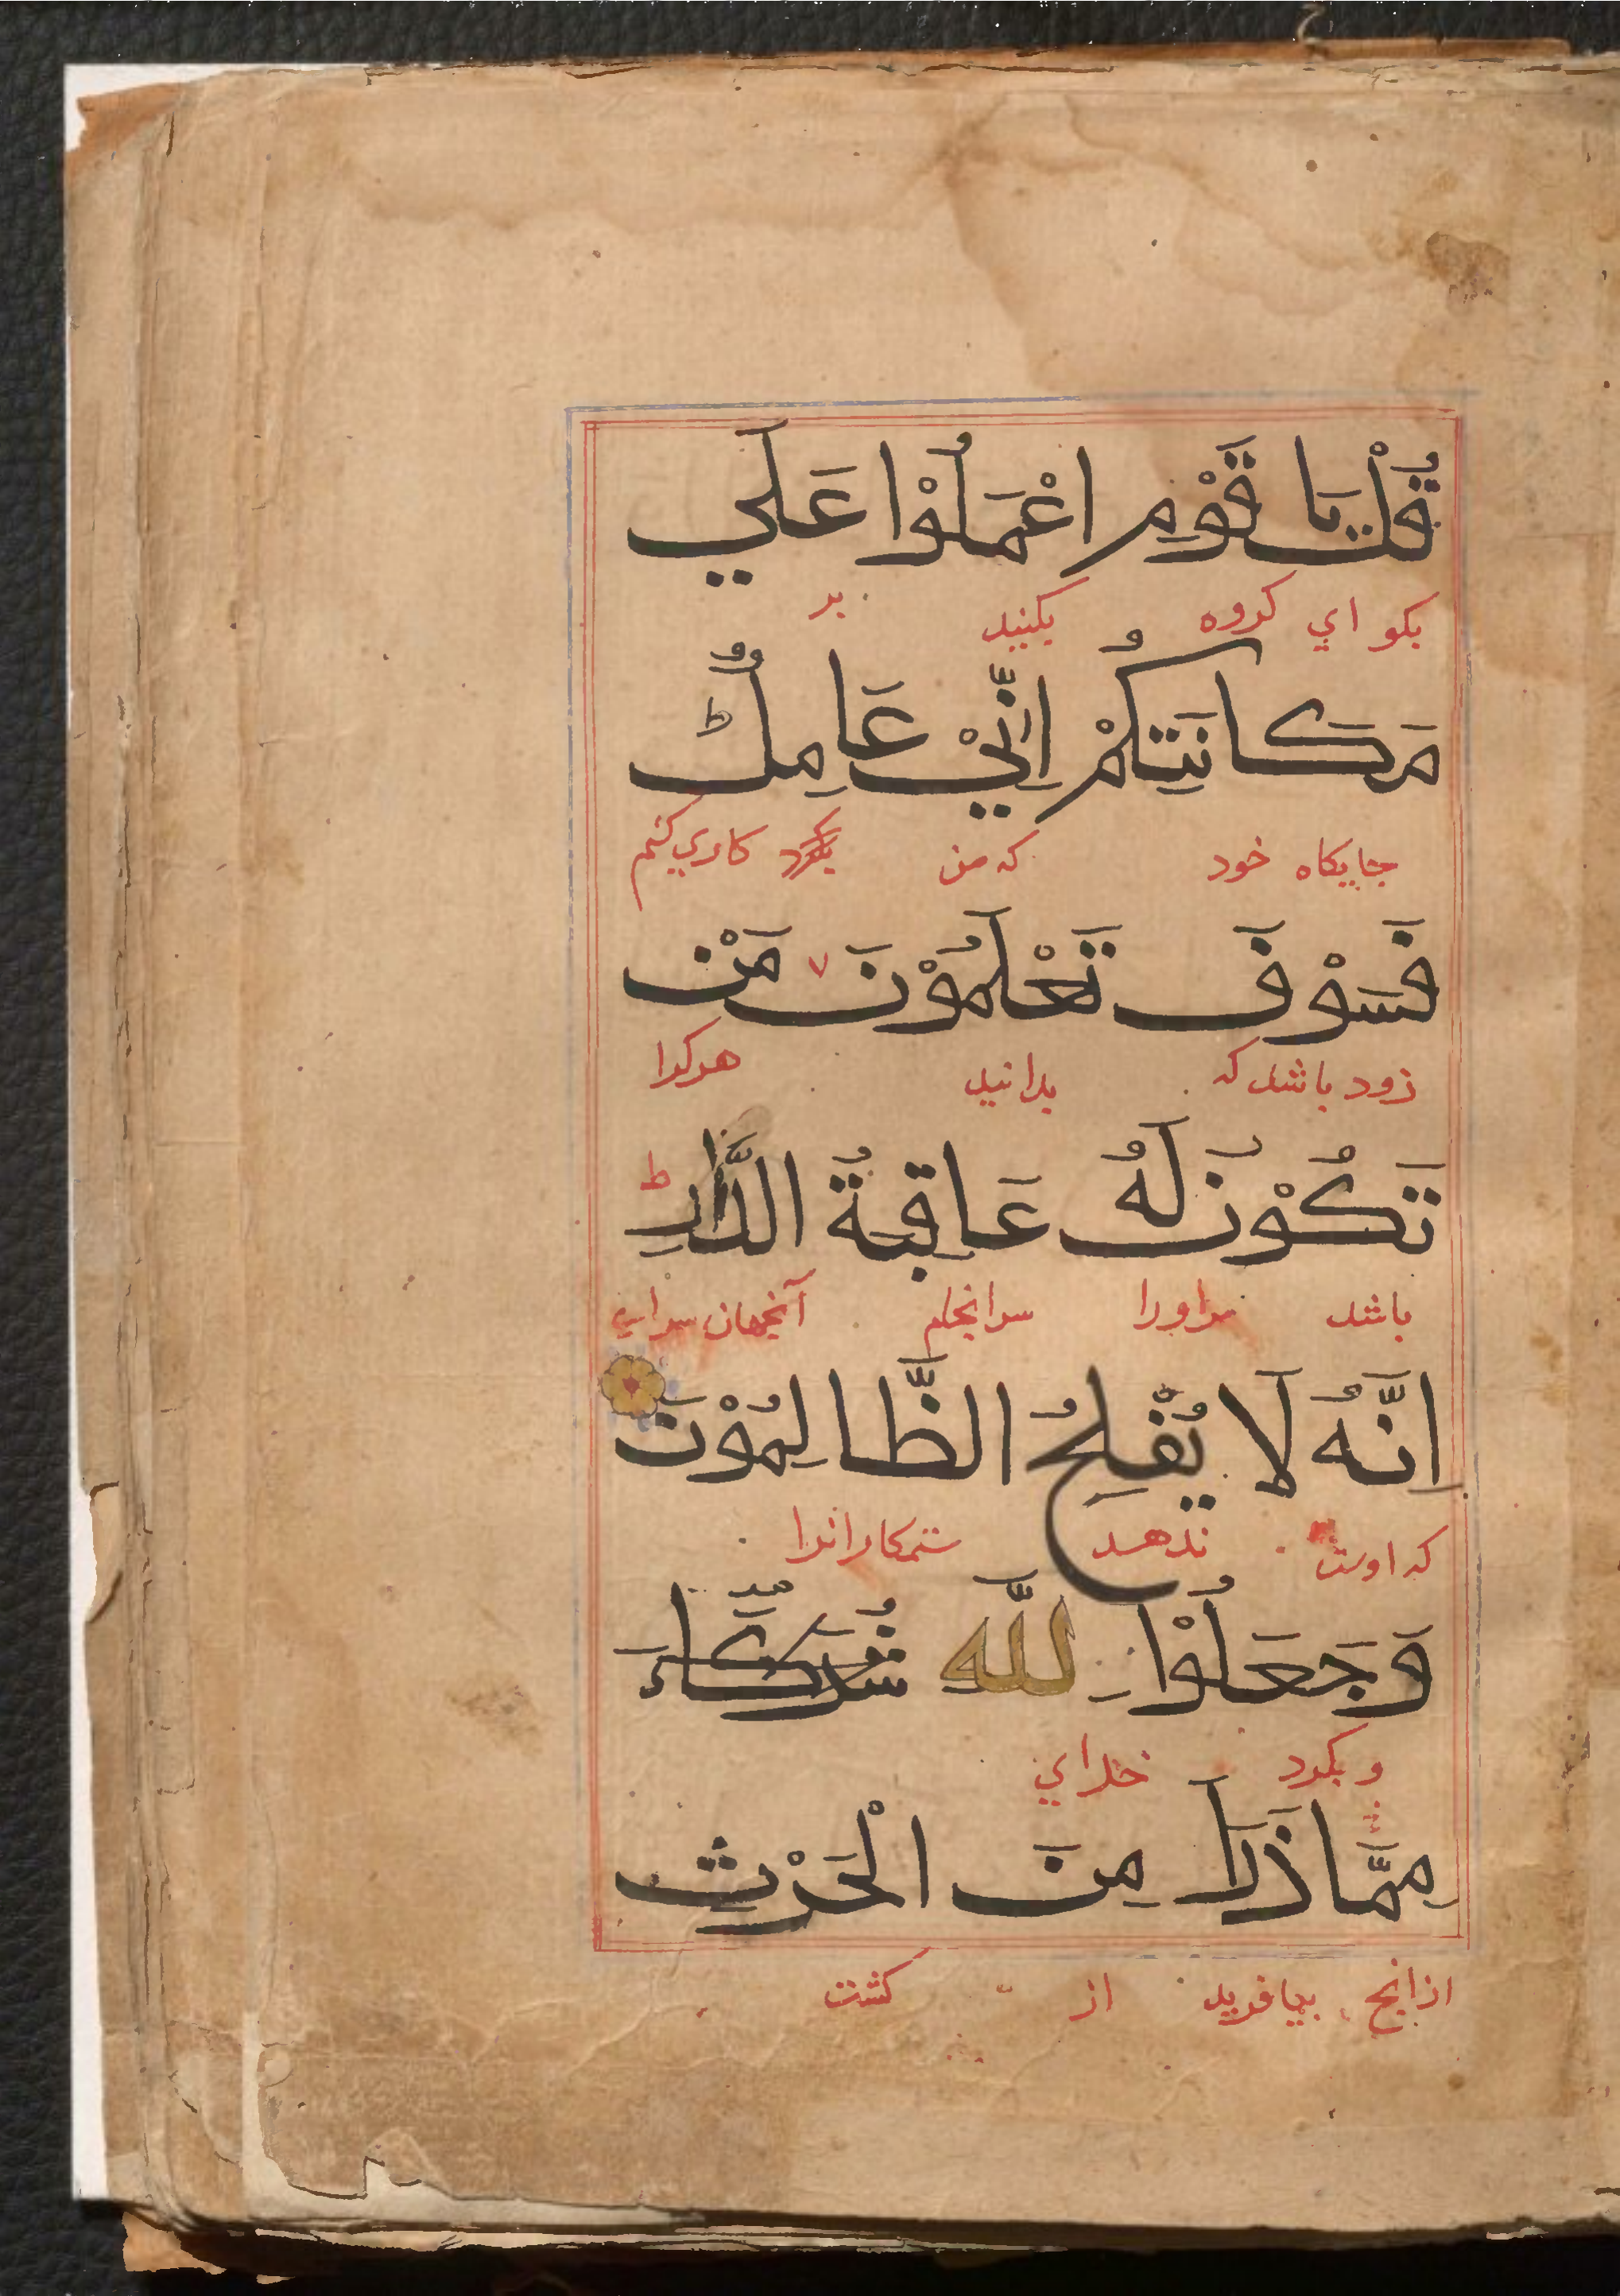 قُلْ يَا قَوْمِ اعْمَلُوْا عَلَي
بكو اي كروه بكنيد بر
مَكَانَتِكُمْ اِنِّيْ عَامِلٌ ط
جايكاه خود كه من كاري كنم
فَسَوْفَ تَعْلَمُوْنَ مَنْ
زود باشد كه بدانيد هركرا
تَكُوْنُ لَهُ عَاقِبَةُ الدَّارِ ط
باشد مراورا سرانجام آنجهان سراي
اِنَّهُ لَا يُفْلِحُ الظَّالِمُوْنَ
كه اوست ندهد ستمكارانرا
وَجَعَلُوْا لِلَّهِ شُرَكَّاءَ
و بكرد خداي
مِمَّا ذَرَاَ مِنَ الْحَرْثِ
ازانچ بيافريد از كشت